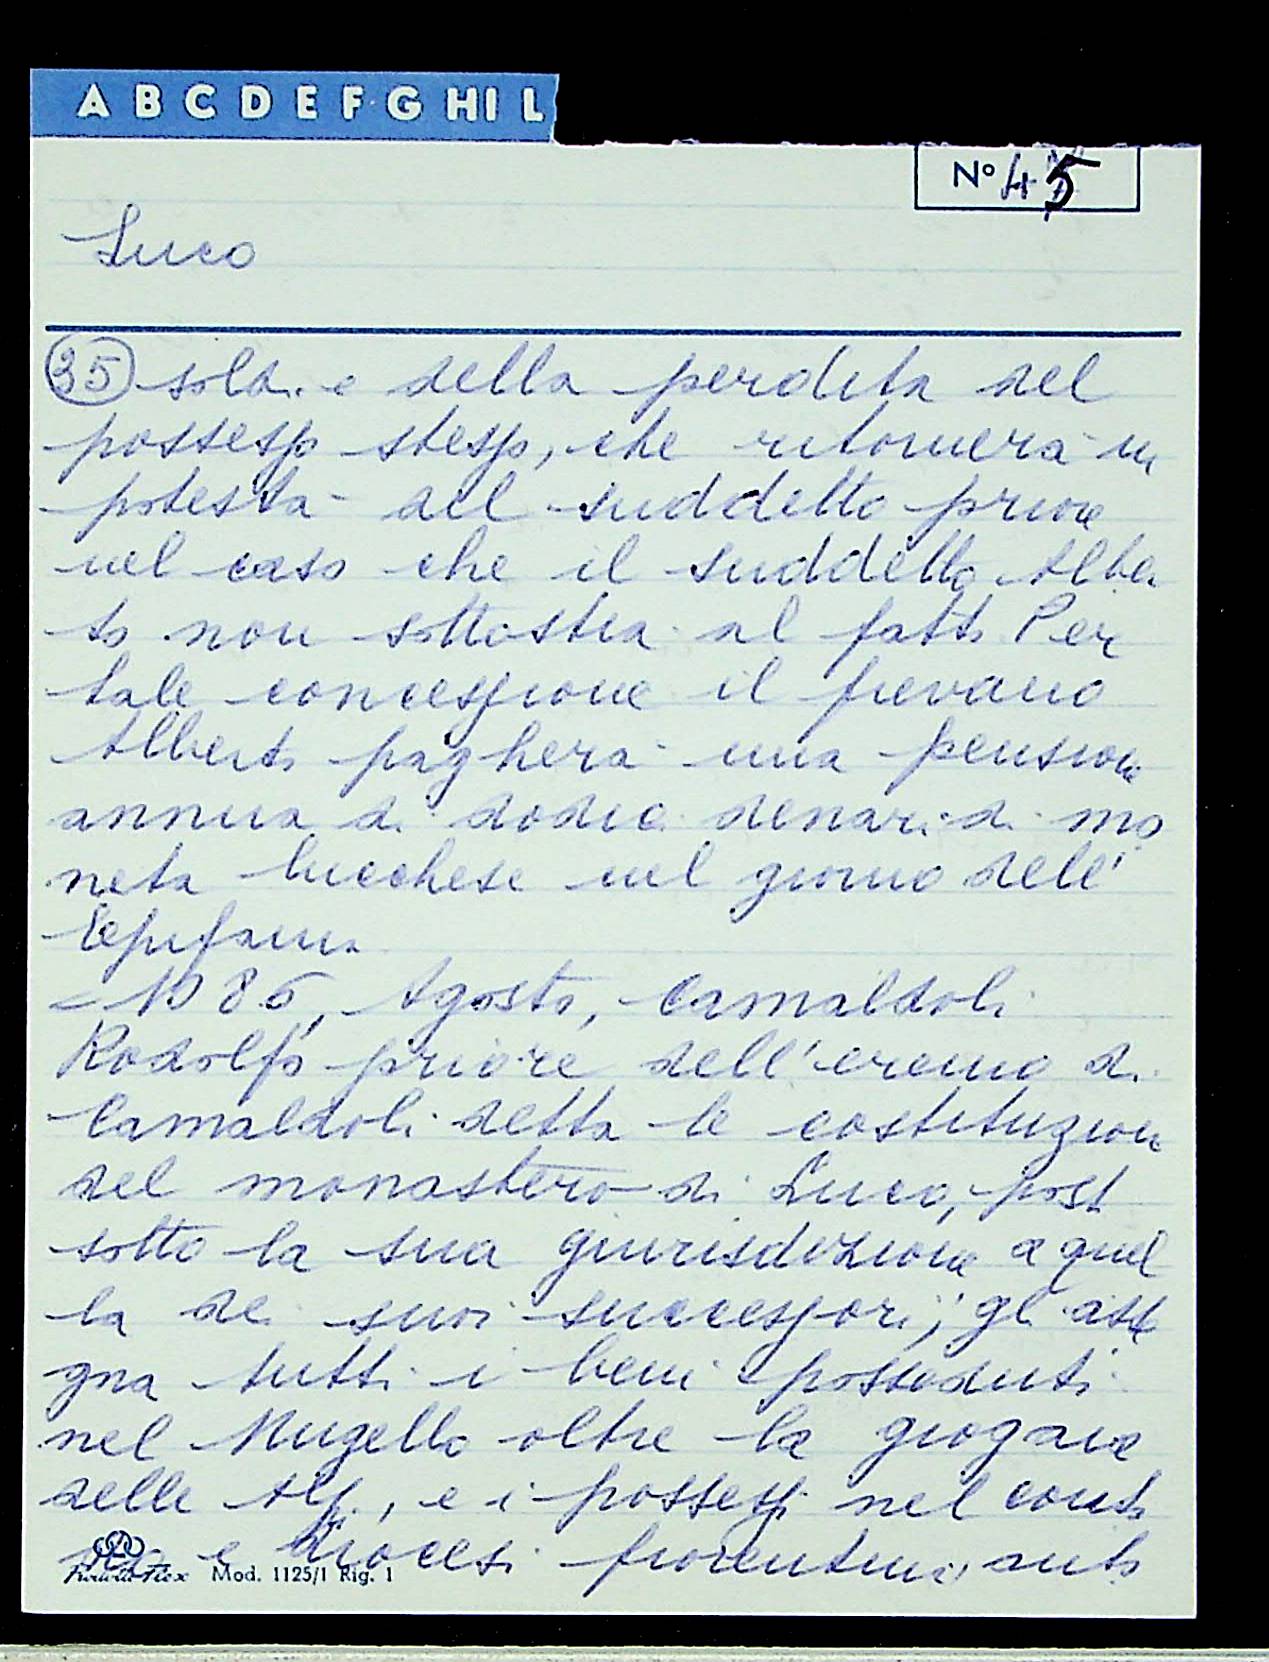 A B C D E F G HI L
Nº 45
Luco
35 soldi e della perdita del
possesso stesso, che ritornerà in
potestà del suddetto priore
nel caso che il suddetto Alber
to non sottostia al fatto Per
tale concessione il pievano
Alberto pagherà una pensione
annua di dodici denari di mo
neta lucchese nel giorno dell'
Epifania
= 1086, Agosto, Camaldoli
Rodolfo priore dell'eremo di
Camaldoli detta le costituzioni
del monastero di Luco, post
sotto la sua giurisdizione e quel
la dei suoi successori; gli asse
gna tutti i beni posseduti
nel Mugello oltre la giogaia
delle Alpi, e i possessi nel conta
do e diocesi fiorentini, auto
Mod. 1125/1 Rig. 1